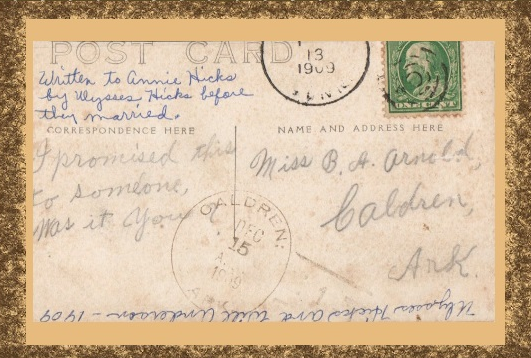 POST CARD
13
1909
Written to Annie Hicks
by Ulysses Hicks before
they married.
ONE CENT
CORRESPONDENCE HERE
NAME AND ADDRESS HERE
I promised this
to someone,
Was it You
Miss B. A. Arnold,
Caldren,
Ark.
CALDREN.
DEC
15
1909
Ulysses Hicks and Will Anderson - 1909